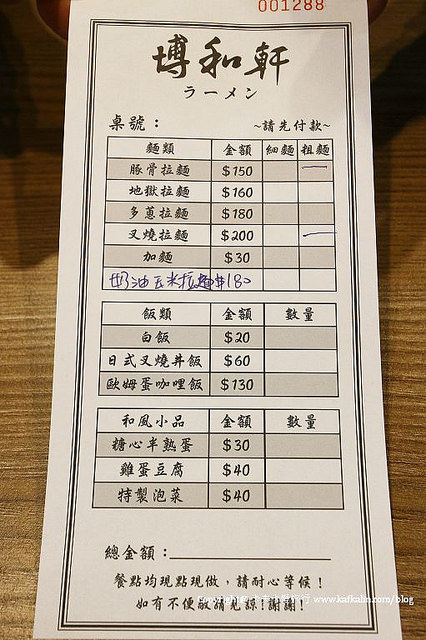 001288
博和軒
ラーメン
桌號：
~請先付款~
麵類 金額 細麵 粗麵
豚骨拉麵 $150 一
地獄拉麵 $160
多蔥拉麵 $180
叉燒拉麵 $200 一
加麵 $30
奶油玉米拉麵$180
飯類 金額 數量
白飯 $20
日式叉燒丼飯 $60
歐姆蛋咖哩飯 $130
和風小品 金額 數量
糖心半熟蛋 $30
雞蛋豆腐 $40
特製泡菜 $40
總金額：
餐點均現點現做，請耐心等候！
如有不便敬請見諒！謝謝！
www.kafkalin.com/blog